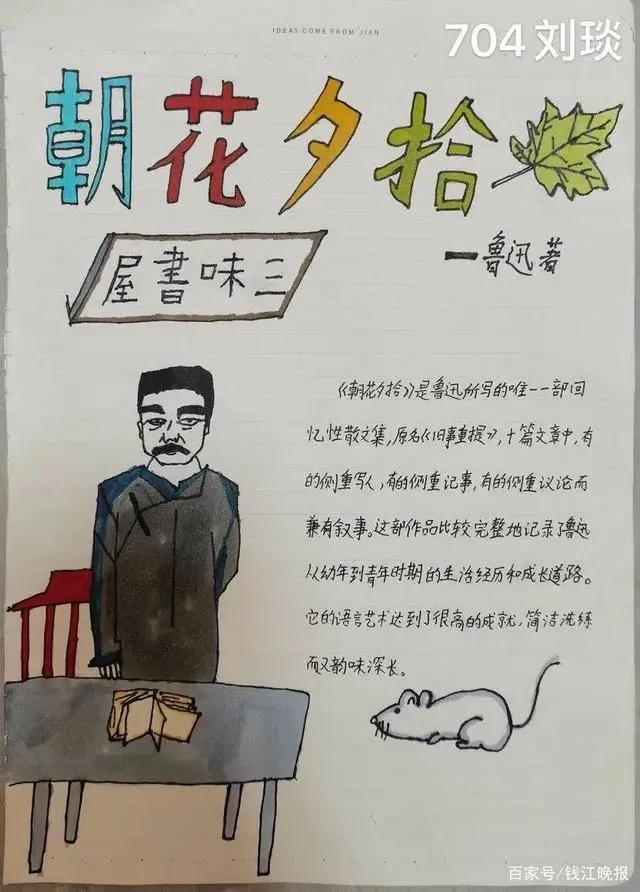 IDEAS COME FROM JIAN
704 刘琰
朝花夕拾
屋書味三
一鲁迅著
《朝花夕拾》是鲁迅所写的唯一一部回
忆性散文集，原名《旧事重提》，十篇文章中，有
的侧重写人，有的侧重记事，有的侧重议论而
兼有叙事。这部作品比较完整地记录了鲁迅
从幼年到青年时期的生活经历和成长道路。
它的语言艺术达到了很高的成就，简洁洗练
而又韵味深长。
百家号/钱江晚报